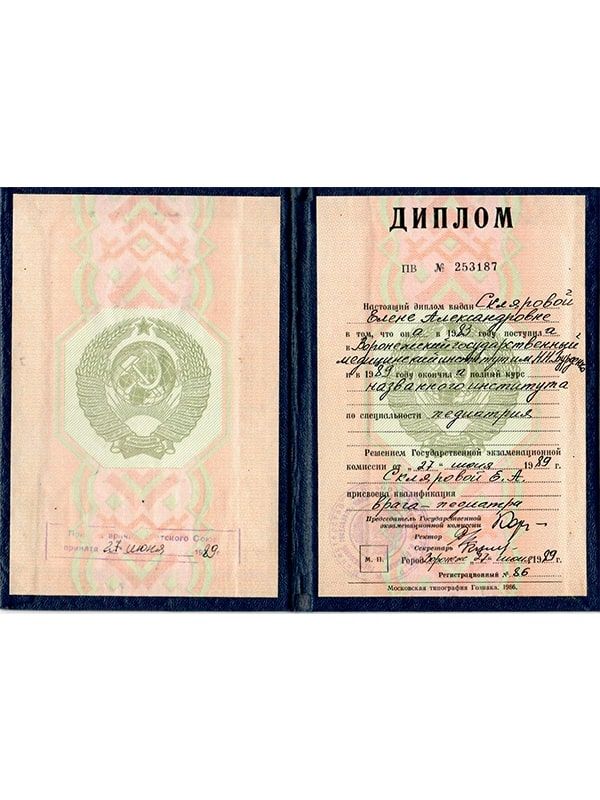 врача Советского Союза
принята 27 июня 1989 г.
ДИПЛОМ
ПВ № 253187
Настоящий диплом выдан Скляровой
Елене Александровне
в том, что она в 1983 году поступила
в Воронежский государственный
медицинский институт им. Н.Н. Бурденко
и в 1989 году окончила полный курс
названного института
по специальности педиатрия
Решением Государственной экзаменационной
комиссии от „27“ июня 1989 г.
Скляровой Е. А.
присвоена квалификация
врача-педиатра
Председатель Государственной
экзаменационной комиссии
Ректор
Секретарь
М. П.
Город Воронеж 27 июня 1989 г.
Регистрационный № 86
Московская типография Гознака. 1986.